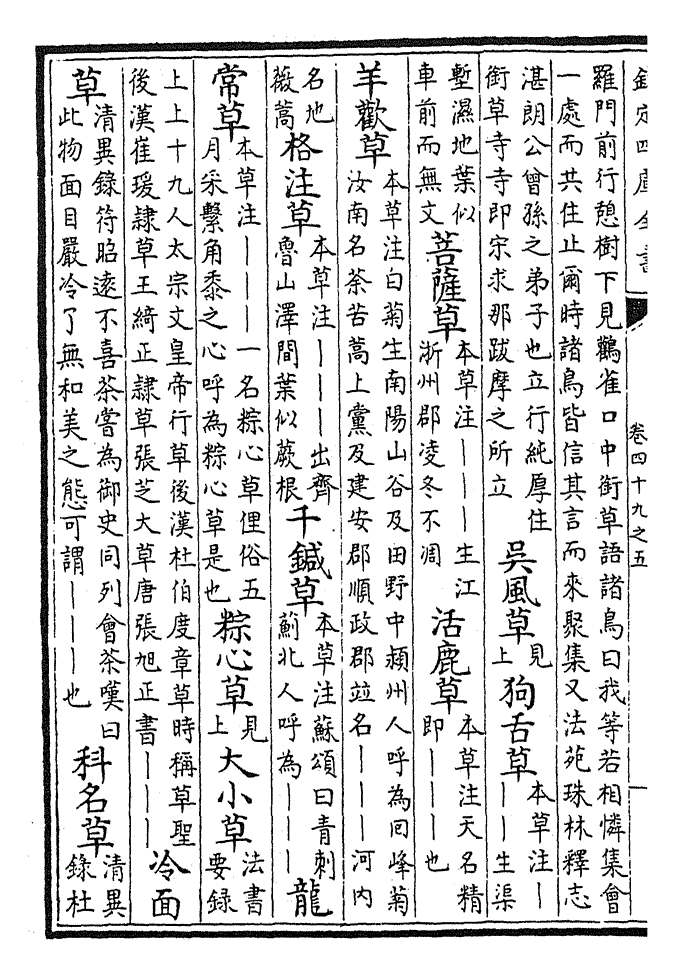 欽定四庫全書 卷四十九之五
羅門前行憩樹下見鸛雀口中銜草語諸鳥曰我等若相憐集會
一處而共住止爾時諸鳥皆信其言而來聚集又法苑珠林釋志
湛朗公曾孫之弟子也立行純厚住
銜草寺寺即宋求那跋摩之所立
吳風草
見
上
狗舌草
本草注｜
｜｜生渠
塹濕地葉似
車前而無文
菩薩草
本草注｜｜｜生江
浙州郡凌冬不凋
活鹿草
本草注天名精
即｜｜｜也
羊歡草
本草注白菊生南陽山谷及田野中潁州人呼為回峰菊
汝南名荼苦蒿上黨及建安郡順政郡竝名｜｜｜河内
名地
薇蒿
格注草
本草注｜｜｜出齊
魯山澤間葉似蕨根
千鍼草
本草注蘇頌曰青刺
薊北人呼為｜｜｜
龍
常草
本草注｜｜｜一名粽心草俚俗五
月采繫角黍之心呼為粽心草是也
粽心草
見
上
大小草
法書
要録
上上十九人太宗文皇帝行草後漢杜伯度章草時稱草聖
後漢崔瑗隸草王綺正隸草張芝大草唐張旭正書｜｜｜
冷面
草
清異錄符昭遠不喜茶嘗為御史同列會茶嘆曰
此物面目嚴冷了無和美之態可謂｜｜｜也
科名草
清異
錄杜